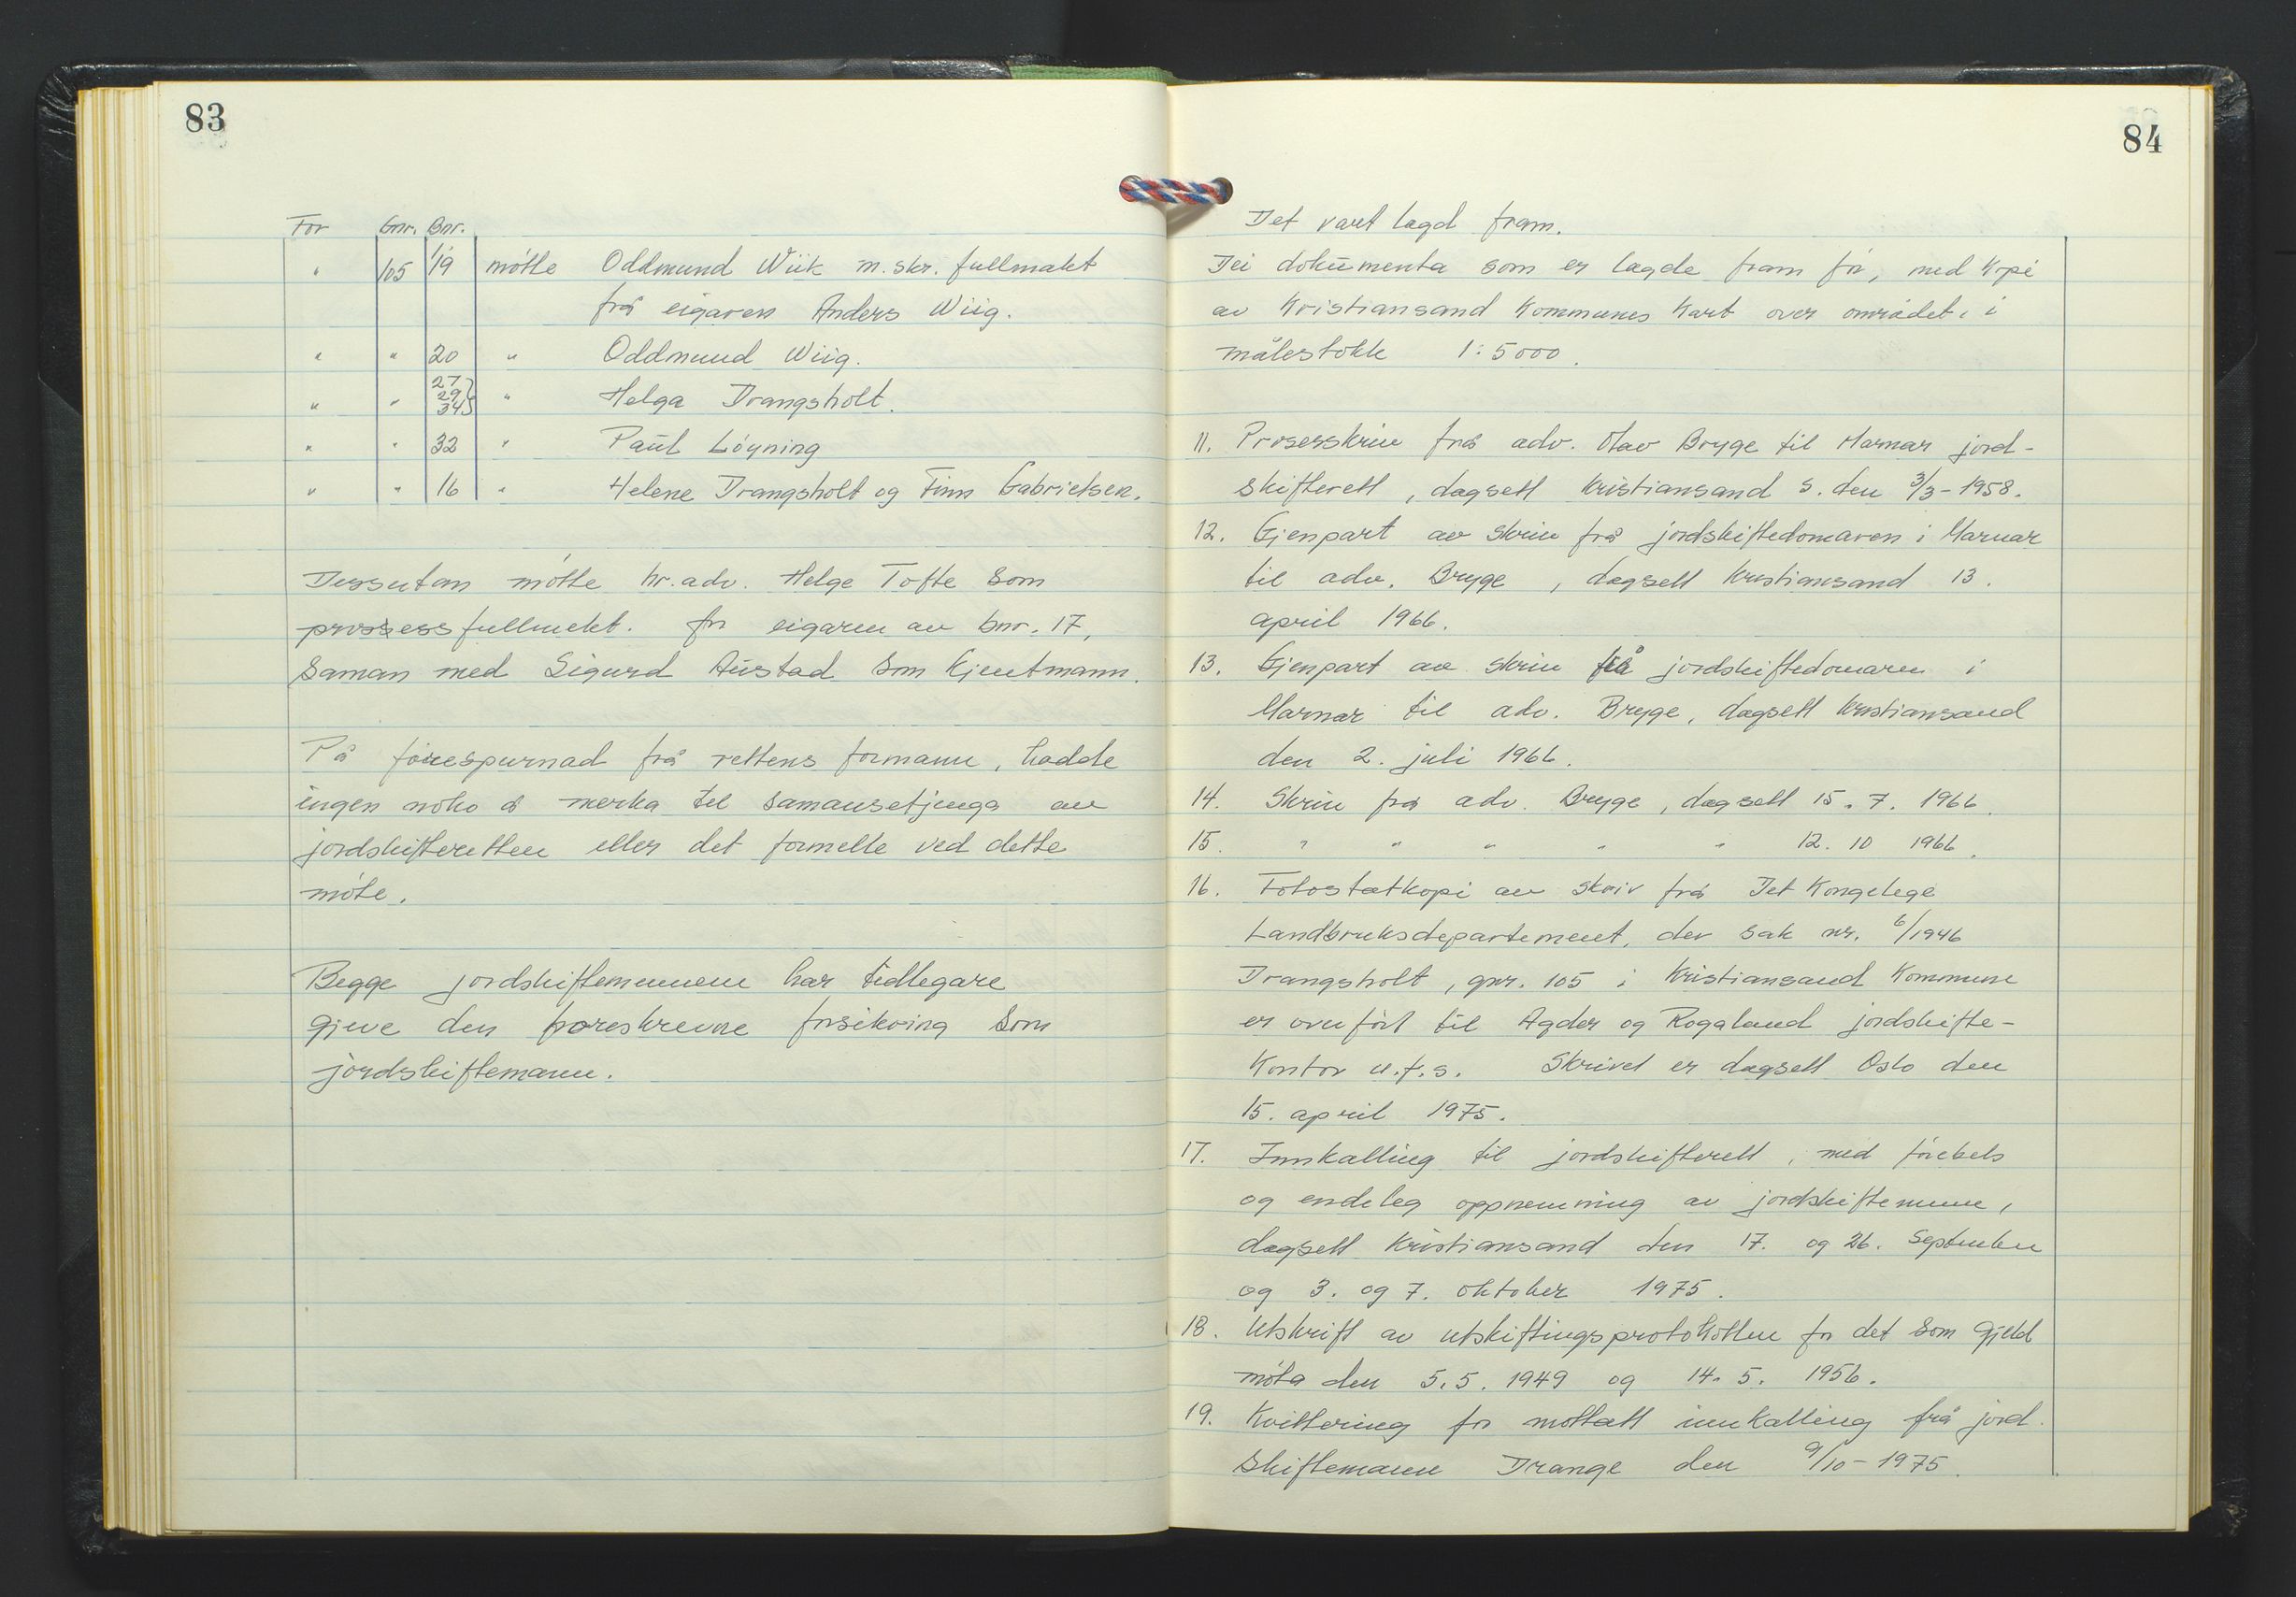 83
For Gnr. Bnr.
" 105 19 møtte Oddmund Wiik m. skr. fullmakt
frå eigaren Anders Wiig.
" " 20 " Oddmund Wiig.
27
" " 29 " Helga Drangsholt.
34
" " 32 " Paul Løyning
" " 16 " Helene Drangsholt og Finn Gabrielsen.
Dessutan møtte hr. adv. Helge Tofte som
prosessfullmekt. for eigaren av bnr. 17,
saman med Sigurd Austad som kjentmann.
På førespurnad frå rettens formann, hadde
ingen noko å merka til samansetjinga av
jordskifteretten eller det formelle ved dette
møte.
Begge jordskiftemennene har tidlegare
gjeve den foreskrevne forsikring som
jordskiftemann.
84
Det vart lagd fram.
Dei dokumenta som er lagde fram før, med kopi
av Kristiansand Kommunes kart over området, i
målestokk 1:5000.
11. Prosesskriv frå adv. Olav Bryge til Marnar jord-
skifterett, dagsett Kristiansand S. den 3/3-1958.
12. Gjenpart av skriv frå jordskiftedomaren i Marnar
til adv. Bryge, dagsett Kristiansand 13.
april 1966.
13. Gjenpart av skriv frå jordskiftedomaren i
Marnar til adv. Bryge, dagsett Kristiansand
den 2. juli 1966.
14. Skriv frå adv. Bryge, dagsett 15.7.1966.
15. " " " " " 12.10 1966.
16. Fotostatkopi av skriv frå Det Kongelege
Landbruksdepartement, der sak nr. 6/1946
Drangsholt, gnr. 105 i Kristiansand Kommune
er overført til Agder og Rogaland jordskifte-
kontor u.f.s. Skrivet er dagsett Oslo den
15. april 1975.
17. Innkalling til jordskifterett, med førebels
og endeleg oppnemning av jordskiftemenn,
dagsett Kristiansand den 17. og 26. September
og 3. og 7. oktober 1975.
18. Utskrift av utskiftingsprotokollen for det som gjeld
møta den 5.5.1949 og 14.5.1956.
19. Kvittering for mottatt innkalling frå jord-
skiftemann Drange den 9/10-1975.